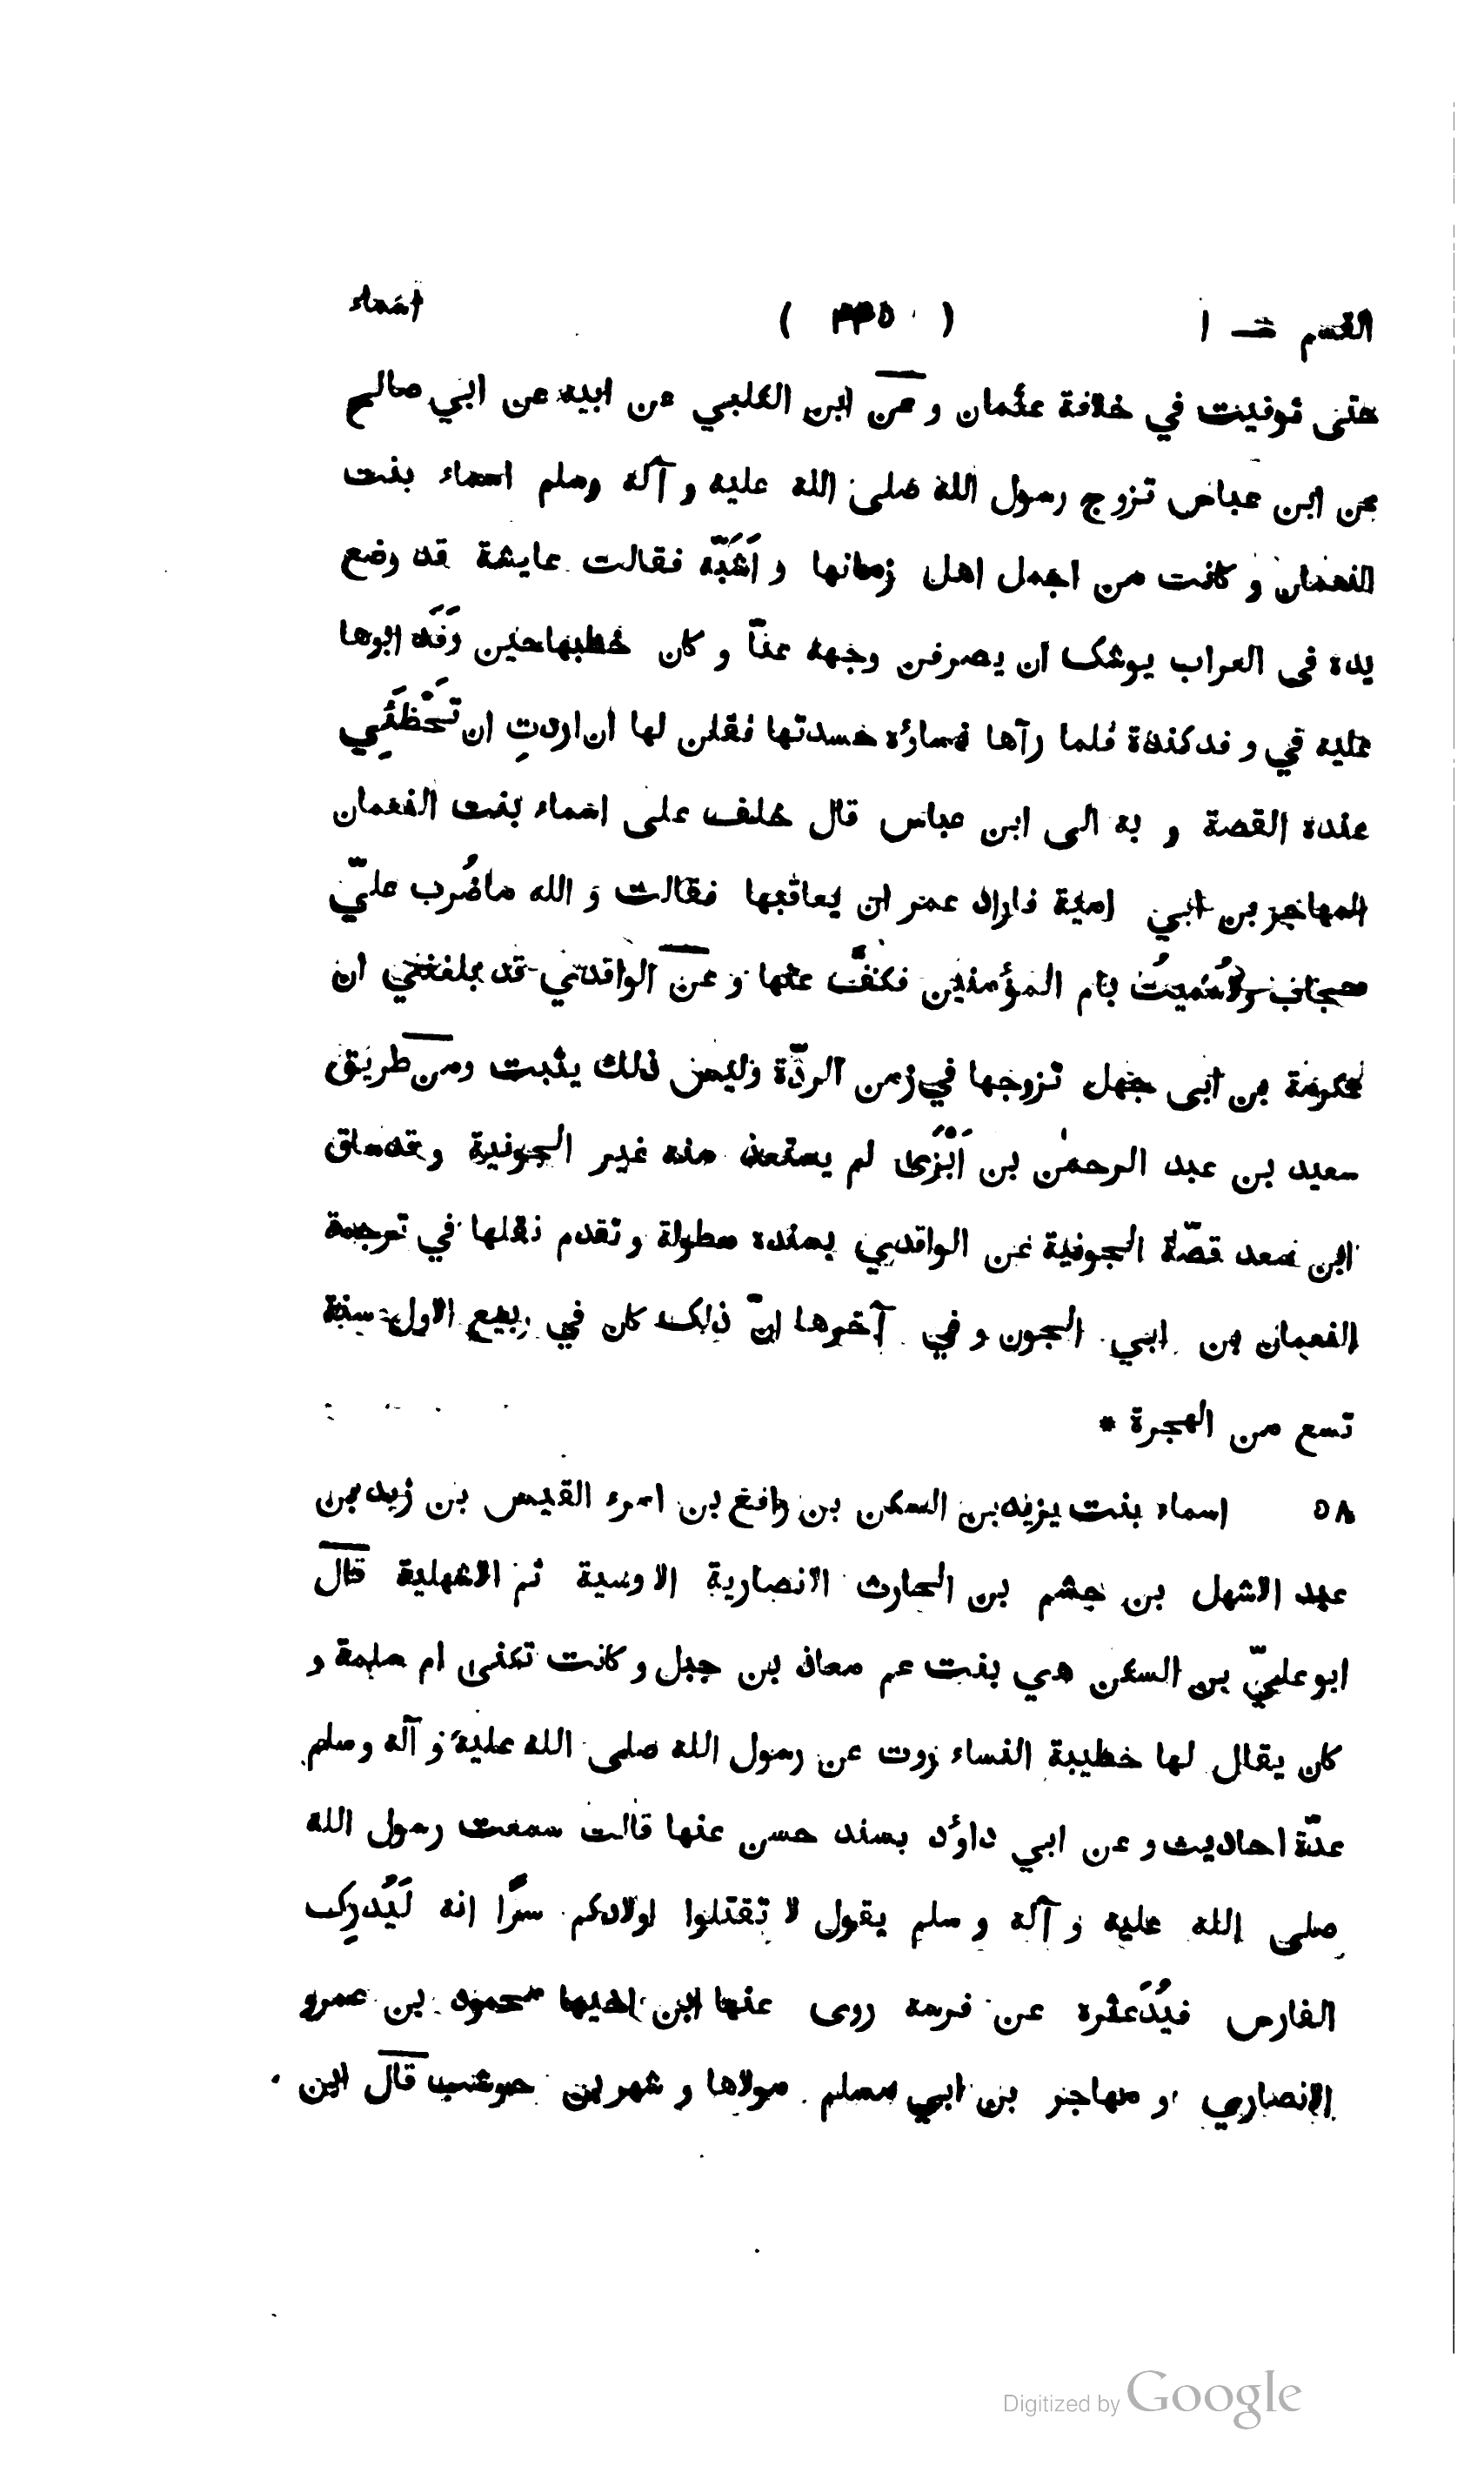 القسم — ١ ( ٤٤٥ ) اسماء
حتى توفيت في خلافة عثمان و عن ابن الكلبي عن ابيه عن ابي صالح
عن ابن عباس تزوج رسول الله صلى الله عليه و آله وسلم اسماء بنت
النعمان و كانت من اجمل اهل زمانها و اَشَبّه فقالت عايشة قد وضع
يده فى الغراب يوشك ان يصرفن وجهه عنّا و كان خطبها حين وَفَد ابوها
عليه في وفد كندة فلما رآها نساؤه حسدتها فقلن لها ان اردتِ ان تَحْظَئِي
عنده القصة و به الى ابن عباس قال خلف على اسماء بنت النعمان
المهاجر بن ابي امية فاراد عمر ان يعاقبها فقالت و الله ماضُرب عليّ
حجاب ولا سُميتُ بام المؤمنين فكفَّ عنها و عن الواقدي قد بلغني ان
عكرمة بن ابى جهل تزوجها في زمن الردّة وليس ذلك يثبت ومن طريق
سعيد بن عبد الرحمٰن بن اَبْزَى لم يستعذ منه غير الجونية و قد ساق
ابن سعد قصّة الجونية عن الواقدي بسنده مطولة و تقدم نقلها في ترجمة
النعمان بن ابي الجون و في آخرها انّ ذلك كان في ربيع الاول سنة
تسع من الهجرة *
٥٨ اسماء بنت يزيد بن السكن بن رافع بن امرء القيس بن زيد بن
عبد الاشهل بن جشم بن الحارث الانصارية الاوسية ثم الاشهلية قال
ابو عليّ بن السكن هي بنت عم معاذ بن جبل و كانت تكنى ام سلمة و
كان يقال لها خطيبة النساء روت عن رسول الله صلى الله عليه و آله وسلم
عدّة احاديث و عن ابي داؤد بسند حسن عنها قالت سمعت رسول الله
صلى الله عليه و آله و سلم يقول لا تقتلوا اولادكم سرًّا انه لَيُدرِك
الفارس فيُدَعثره عن فرسه روى عنها ابن اخيها محمود بن عمرو
الانصاري و مهاجر بن ابي مسلم مولاها و شهر بن حوشب قال ابن
Digitized by Google